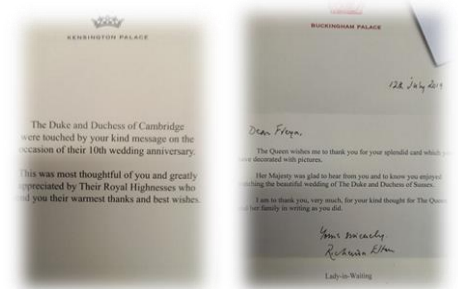 KENSINGTON PALACE
The Duke and Duchess of Cambridge
were touched by your kind message on the
occasion of their 10th wedding anniversary.
This was most thoughtful of you and greatly
appreciated by Their Royal Highnesses who
you their warmest thanks and best wishes.
BUCKINGHAM PALACE
12th July 2019
Dear Freya,
The Queen wishes me to thank you for your splendid card which
decorated with pictures.
Her Majesty was glad to hear from you and to know you enjoyed
the beautiful wedding of The Duke and Duchess of Sussex.
I am to thank you, very much, for your kind thought for The Queen
her family in writing as you did.
Yours sincerely
Lady-in-Waiting